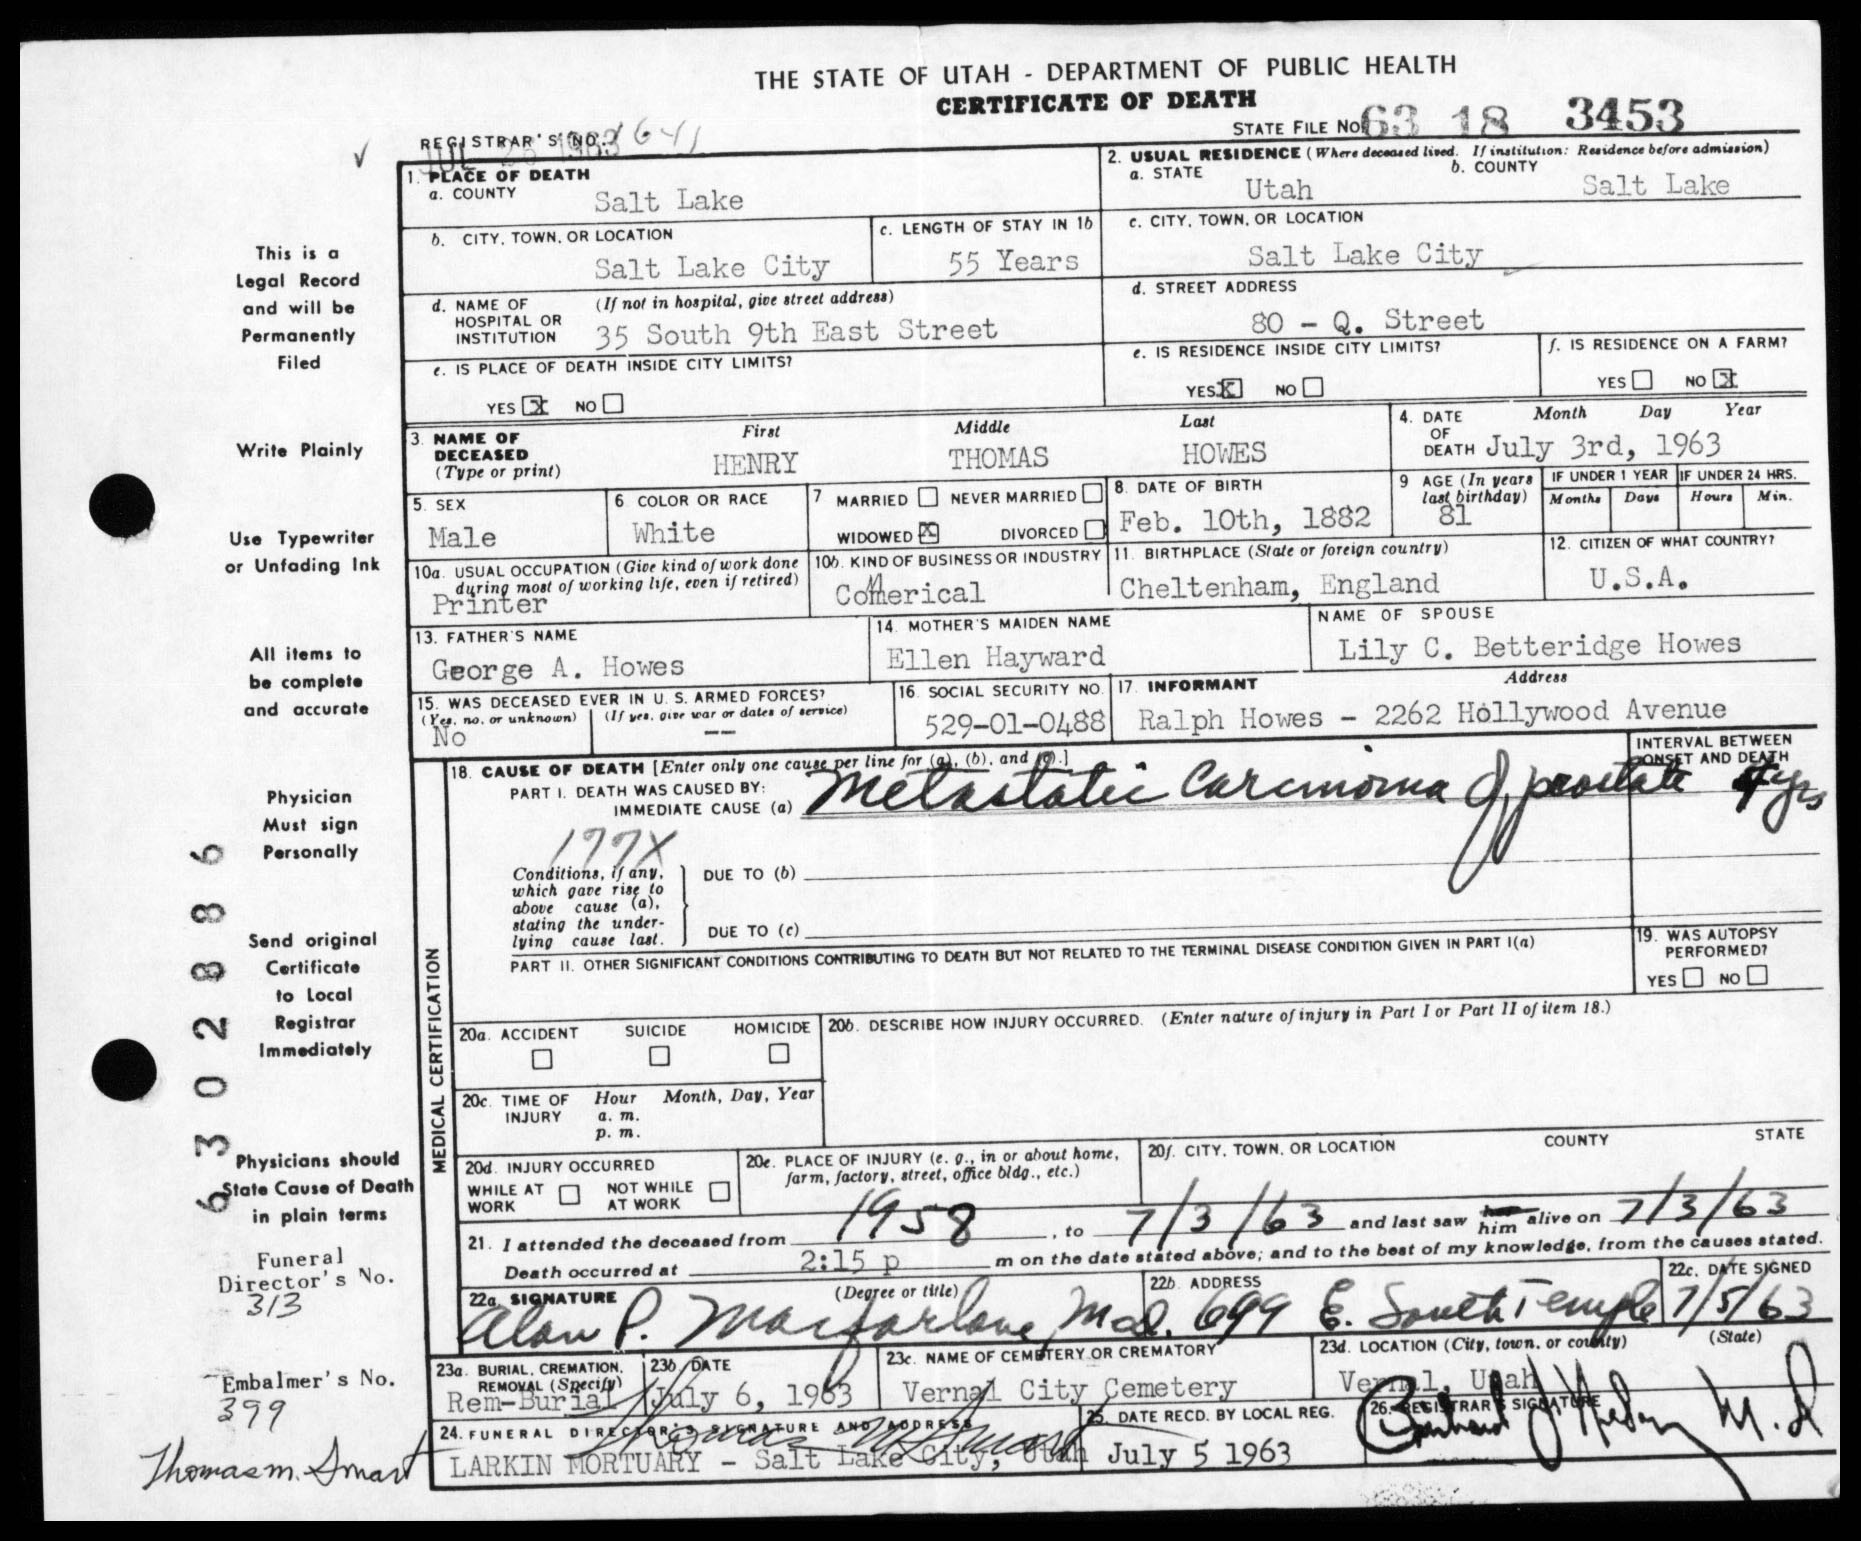 THE STATE OF UTAH - DEPARTMENT OF PUBLIC HEALTH
CERTIFICATE OF DEATH
STATE FILE NO. 63 18 3453
REGISTRAR'S NO. 1641
JUL 26 1963
1. PLACE OF DEATH
a. COUNTY
Salt Lake
2. USUAL RESIDENCE (Where deceased lived. If institution: Residence before admission)
a. STATE
Utah
b. COUNTY
Salt Lake
b. CITY, TOWN, OR LOCATION
Salt Lake City
c. LENGTH OF STAY IN 1b
55 Years
c. CITY, TOWN, OR LOCATION
Salt Lake City
d. NAME OF HOSPITAL OR INSTITUTION
(If not in hospital, give street address)
35 South 9th East Street
d. STREET ADDRESS
80 - Q. Street
e. IS PLACE OF DEATH INSIDE CITY LIMITS?
YES X NO
e. IS RESIDENCE INSIDE CITY LIMITS?
YES X NO
f. IS RESIDENCE ON A FARM?
YES NO X
3. NAME OF DECEASED
(Type or print)
First Middle Last
HENRY THOMAS HOWES
4. DATE OF DEATH
Month Day Year
July 3rd, 1963
5. SEX
Male
6 COLOR OR RACE
White
7 MARRIED NEVER MARRIED
WIDOWED X DIVORCED
8. DATE OF BIRTH
Feb. 10th, 1882
9 AGE (In years last birthday)
81
IF UNDER 1 YEAR
Months Days
IF UNDER 24 HRS.
Hours Min.
10a. USUAL OCCUPATION (Give kind of work done during most of working life, even if retired)
Printer
10b. KIND OF BUSINESS OR INDUSTRY
Commerical
11. BIRTHPLACE (State or foreign country)
Cheltenham, England
12. CITIZEN OF WHAT COUNTRY?
U.S.A.
13. FATHER'S NAME
George A. Howes
14. MOTHER'S MAIDEN NAME
Ellen Hayward
NAME OF SPOUSE
Lily C. Betteridge Howes
15. WAS DECEASED EVER IN U. S. ARMED FORCES?
(Yes, no, or unknown) (If yes, give war or dates of service)
No --
16. SOCIAL SECURITY NO.
529-01-0488
17. INFORMANT Address
Ralph Howes - 2262 Hollywood Avenue
MEDICAL CERTIFICATION
18. CAUSE OF DEATH [Enter only one cause per line for (a), (b), and (c).]
PART I. DEATH WAS CAUSED BY:
IMMEDIATE CAUSE (a) Metastatic Carcinoma of prostate
INTERVAL BETWEEN ONSET AND DEATH
4 yrs
177X
Conditions, if any, which gave rise to above cause (a), stating the underlying cause last.
DUE TO (b)
DUE TO (c)
PART II. OTHER SIGNIFICANT CONDITIONS CONTRIBUTING TO DEATH BUT NOT RELATED TO THE TERMINAL DISEASE CONDITION GIVEN IN PART I(a)
19. WAS AUTOPSY PERFORMED?
YES NO
20a. ACCIDENT SUICIDE HOMICIDE
20b. DESCRIBE HOW INJURY OCCURRED. (Enter nature of injury in Part I or Part II of item 18.)
20c. TIME OF INJURY
Hour Month, Day, Year
a. m.
p. m.
20d. INJURY OCCURRED
WHILE AT WORK NOT WHILE AT WORK
20e. PLACE OF INJURY (e. g., in or about home, farm, factory, street, office bldg., etc.)
20f. CITY, TOWN, OR LOCATION COUNTY STATE
21. I attended the deceased from 1958, to 7/3/63 and last saw him alive on 7/3/63
Death occurred at 2:15 p m on the date stated above; and to the best of my knowledge, from the causes stated.
22a. SIGNATURE (Degree or title)
Alan P. Macfarlane, M.D.
22b. ADDRESS
699 E. South Temple
22c. DATE SIGNED
7/5/63
23a. BURIAL, CREMATION, REMOVAL (Specify)
Rem-Burial
23b. DATE
July 6, 1963
23c. NAME OF CEMETERY OR CREMATORY
Vernal City Cemetery
23d. LOCATION (City, town, or county) (State)
Vernal, Utah
24. FUNERAL DIRECTOR'S SIGNATURE AND ADDRESS
Thomas M. Smart
LARKIN MORTUARY - Salt Lake City, Utah
25. DATE RECD. BY LOCAL REG.
July 5 1963
26. REGISTRAR'S SIGNATURE
M.D.
This is a
Legal Record
and will be
Permanently
Filed
Write Plainly
Use Typewriter
or Unfading Ink
All items to
be complete
and accurate
Physician
Must sign
Personally
Send original
Certificate
to Local
Registrar
Immediately
Physicians should
State Cause of Death
in plain terms
Funeral
Director's No.
313
Embalmer's No.
399
Thomas M. Smart
63028886